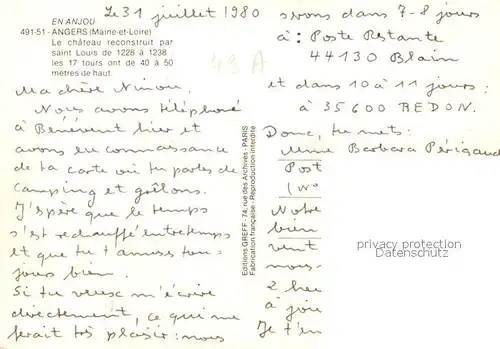 Le 31 juillet 1980
EN ANJOU
491-51 - ANGERS (Maine-et-Loire)
Le château reconstruit par
saint Louis de 1228 à 1238
les 17 tours ont de 40 à 50
mètres de haut.
49 A
Ma chère Ninou,
Nous avons téléphoné
à Bénévent hier et
avons eu connaissance
de ta carte où tu parles de
camping et grêlons.
J'espère que le temps
s'est réchauffé entretemps
et que tu t'amuses tou-
jours bien.
Si tu veux m'écrire
directement, ce qui me
ferait très plaisir : nous
Editions GREFF - 74, rue des Archives - PARIS
Fabrication française - Reproduction interdite
serons dans 7-8 jours
à : Poste Restante
44130 Blain
et dans 10 à 11 jours :
à 35600 REDON.
Donc, tu mets :
Mme Barbara Périgaud
Post
Notre
bien
vent
nous-
2 heu
à jou
Je t'en
privacy protection
www.delcampe.net